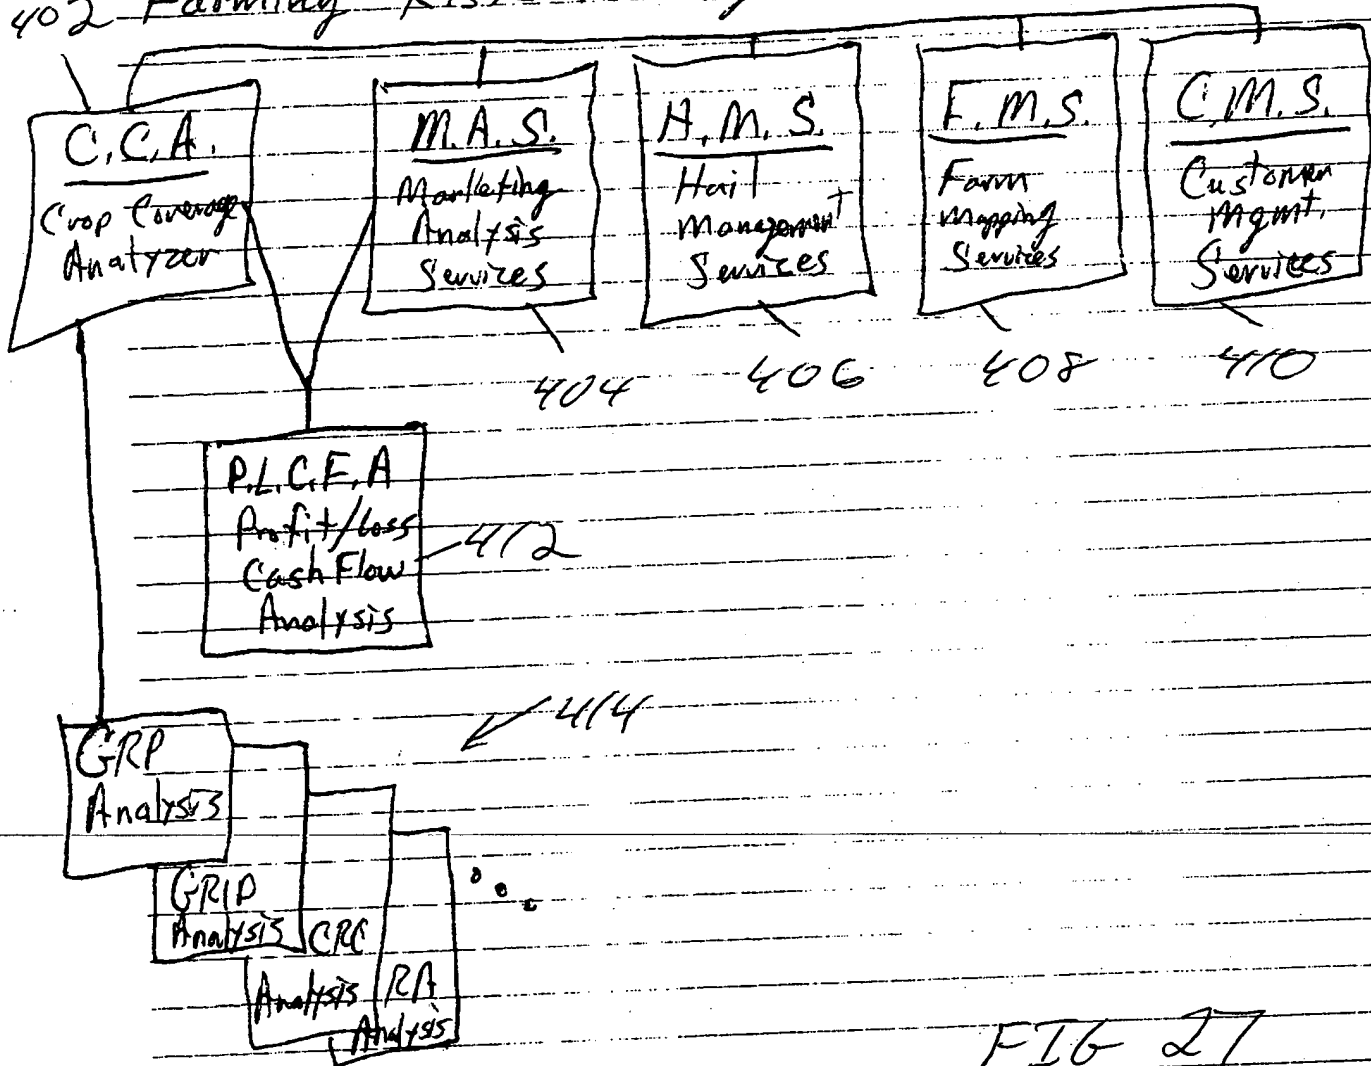 402 Farming Risk
C.C.A.
Crop Coverage
Analyzer
M.A.S.
Marketing
Analysis
Services
H.M.S.
Hail
Management
Services
F.M.S.
Farm
Mapping
Services
C.M.S.
Customer
Mgmt.
Services
404
406
408
410
P.L.C.F.A
Profit/Loss
Cash Flow
Analysis
412
414
GRP
Analysis
GRIP
Analysis
CRC
Analysis
RA
Analysis
FIG 27